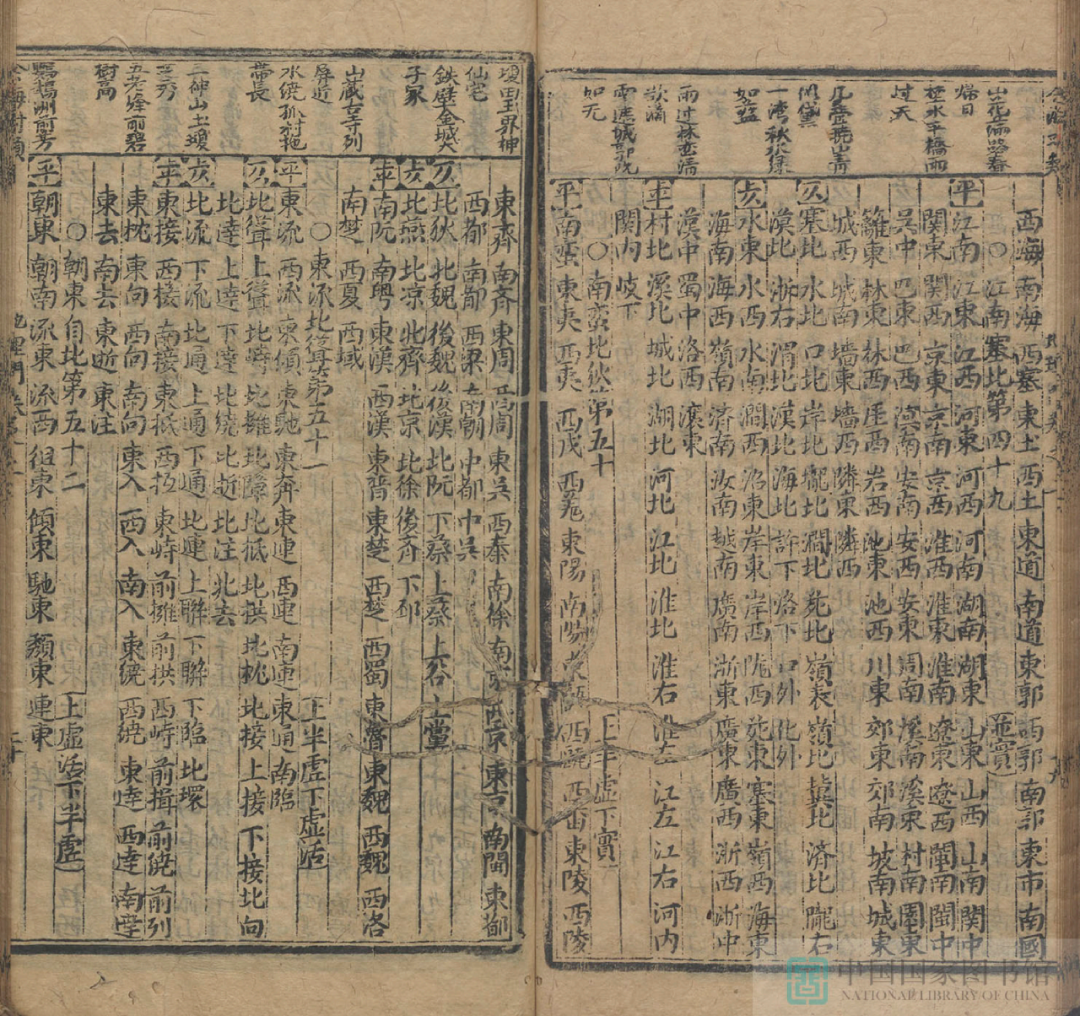 山花滿路春
歸日
橙水平橋雨
過天
几疊曉山青
似黛
一灣秋水綠
如藍
雨過林巒清
欲滴
雲迷城郭阮
如无
西海 南海 西塞 東土 西土 東道 南道 東郭 西郭 南郭 東市 南國
〇江南塞北第四十九
並實
平 江南 江東 江西 河東 河西 河南 湖南 湖東 山東 山西 山南 關中
關東 關西 京東 京南 京西 淮西 淮東 淮南 遼東 遼西 閩西 閩中
吳中 巴東 巴西 漠南 安南 安西 安東 周南 溪南 溪東 村南 園東
籬東 林東 林西 厓西 岩西 池東 池西 川東 郊東 郊南 坡南 城東
城西 城南 墻東 墻西 隣東 隣西
仄 塞北 水北 口北 岸北 隴北 澗北 苑北 嶺表 嶺北 冀北 済北 隴右
漠北 浙右 渭北 漢北 海北 許下 洛下 口外 化外
去 水東 水西 水南 澗西 沼東 岸東 岸西 隴西 苑東 塞東 嶺西 海東
海南 海西 嶺南 済南 汝南 越南 廣南 浙東 廣東 廣西 浙西 浙中
漢中 蜀中 洛西 滾東
平 村北 溪北 城北 湖北 河北 江北 淮北 淮右 淮左 江左 江右 河内
關内 岐下
〇南蛮北狄第五十
上半虛下實
平 南蛮 東夷 西夷 西戎 西羗 東陽 南陽 東陵 西陵
瓊田玉界神
仙宅
鉄壁金城天
子家
山藏古寺列
屏近
水繞孤村拖
帶長
三神山上瓊
芝秀
五老峰前碧
樹高
鸚鵡洲前芳
東齊 南齊 東周 西周 東吳 西秦 南徐 西京 東京 南閩 東都
西都 南都 西梁 南朝 中都 中吳
仄 北狄 北魏 後魏 後漢 北阮 下蔡 上蔡 上谷 上黨
去 北燕 北凉 北齊 北京 北徐 後齐 下邳
平 南阮 南粤 東漢 西漢 東晉 東楚 西楚 西蜀 東魯 東魏 西魏 西洛
南楚 西夏 西域
〇東流北聳第五十一
上半虛下虛活
平 東流 西流 東傾 東馳 東奔 東連 西連 南連 東通 南臨
仄 北聳 上聳 北峙 北擁 北障 北抵 北拱 北枕 北接 上接 下接 北向
北逹 上逹 下逹 北繞 北逝 北注 北去
去 北流 下流 北通 上通 下通 北連 上聨 下聨 下臨 北環
平 東接 西接 南接 東抵 西抵 東峙 前擁 前拱 西峙 前揖 前繞 前列
東枕 東向 西向 南向 東入 西入 南入 東繞 西繞 東逹 西逹
東去 南去 東逝 東注
〇朝東自北第五十二
上虛活下半虛
平 朝東 朝南 流東 流西 徂東 傾東 馳東 頽東 連東
地理門
二十
中国国家图书馆
NATIONAL LIBRARY OF CHINA